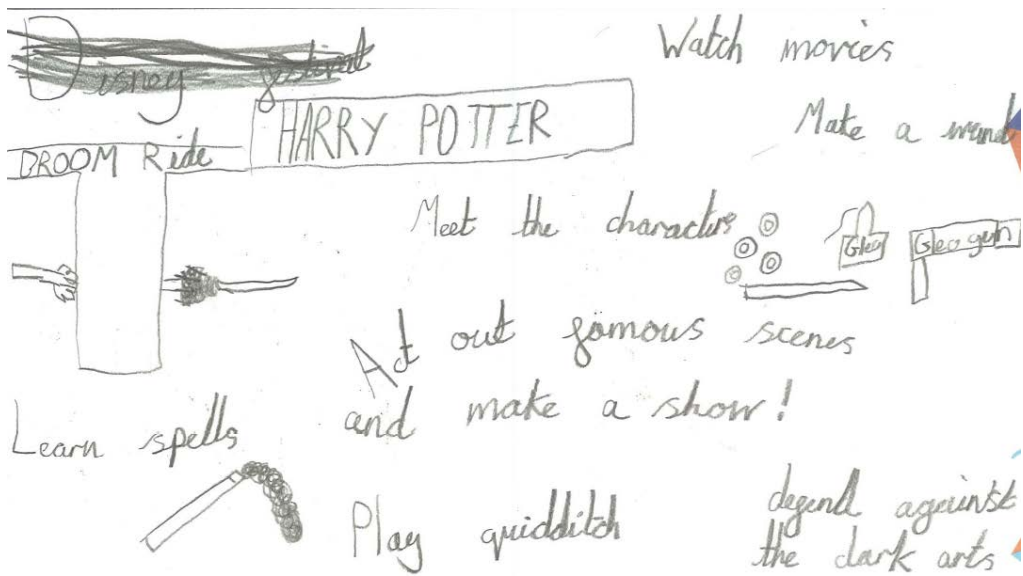 Disney festival
Watch movies
HARRY POTTER
Make a wand
BROOM Ride
Meet the characters
Gleo
Gleo gun
Act out famous scenes
and make a show!
Learn spells
Play quidditch
defend against
the dark arts